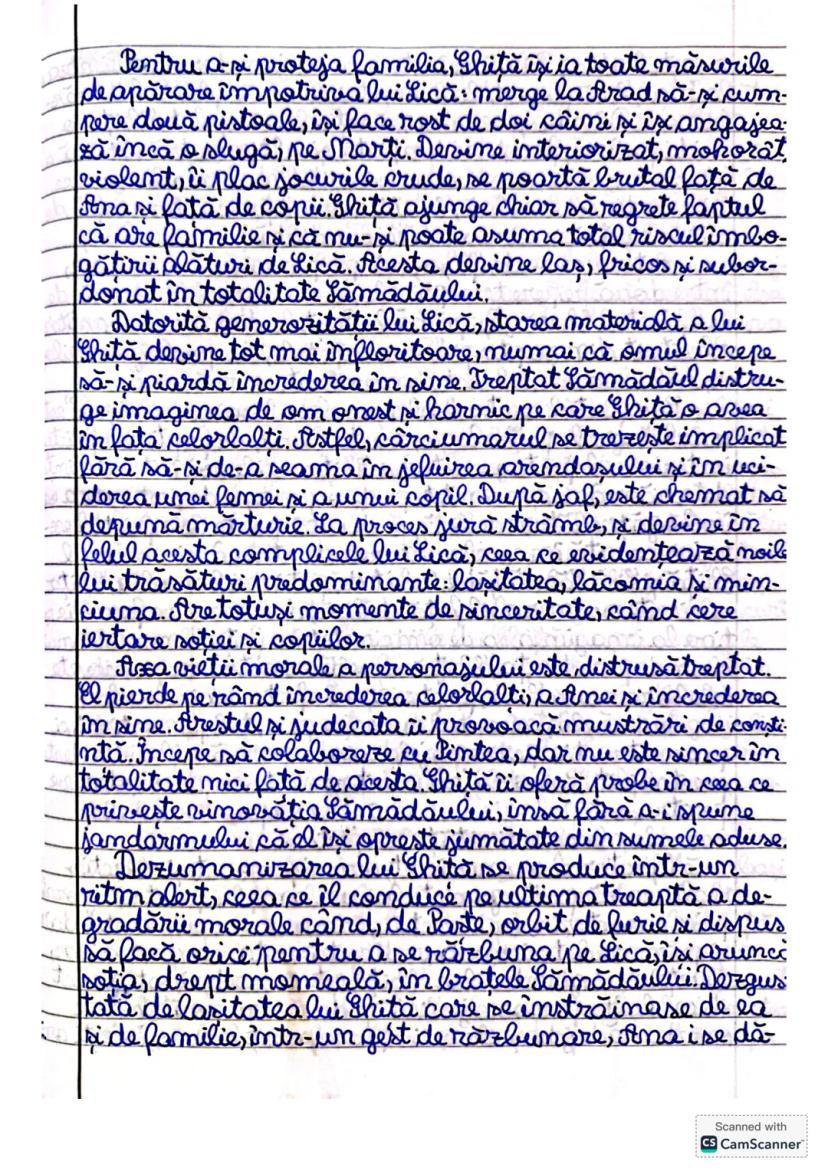 Pentru a-și proteja familia, Ghiță își ia toate măsurile
de apărare împotriva lui Lică: merge la Arad să-și cum-
pere două pistoale, își face rost de doi câini și își angajea-
ză încă o slugă, pe Marți. Devine interiorizat, mohorât,
violent, îi plac jocurile crude, se poartă brutal față de
Ana și față de copii. Ghiță ajunge chiar să regrete faptul
că are familie și că nu-și poate asuma total riscul îmbo-
gățirii alături de Lică. Acesta devine laș, fricos și subor-
donat în totalitate Sămădăului.
Datorită generozității lui Lică, starea materială a lui
Ghiță devine tot mai înfloritoare, numai că omul începe
să-și piardă încrederea în sine. Treptat Sămădăul distru-
ge imaginea de om onest și harnic pe care Ghiță o avea
în fața celorlalți. Astfel, cârciumarul se trezește implicat
fără să-și de-a seama în jefuirea arendașului și în uci-
derea unei femei și a unui copil. După jaf, este chemat să
depună mărturie. La proces jură strâmb, și devine în
felul acesta complicele lui Lică, ceea ce evidențează noile
lui trăsături predominante: lașitatea, lăcomia și min-
ciuna. Are totuși momente de sinceritate, când cere
iertare soției și copiilor.
Axa vieții morale a personajului este distrusă treptat.
El pierde pe rând încrederea celorlalți, a Anei și încrederea
în sine. Arestul și judecata îi provoacă mustrări de conști-
ință. Începe să colaboreze cu Pintea, dar nu este sincer în
totalitate nici față de acesta. Ghiță îi oferă probe în ceea ce
privește vinovăția Sămădăului, însă fără a-i spune
jandarmului că el își oprește jumătate din sumele aduse.
Dezumanizarea lui Ghiță se produce într-un
ritm alert, ceea ce îl conduce pe ultima treaptă a de-
gradării morale când, de Paște, orbit de furie și dispus
să facă orice pentru a se răzbuna pe Lică, își aruncă
soția, drept momeală, în brațele Sămădăului. Dezgus
tată de lașitatea lui Ghiță care se înstrăinase de ea
și de familie, într-un gest de răzbunare, Ana i se dă-
Scanned with
CS CamScanner